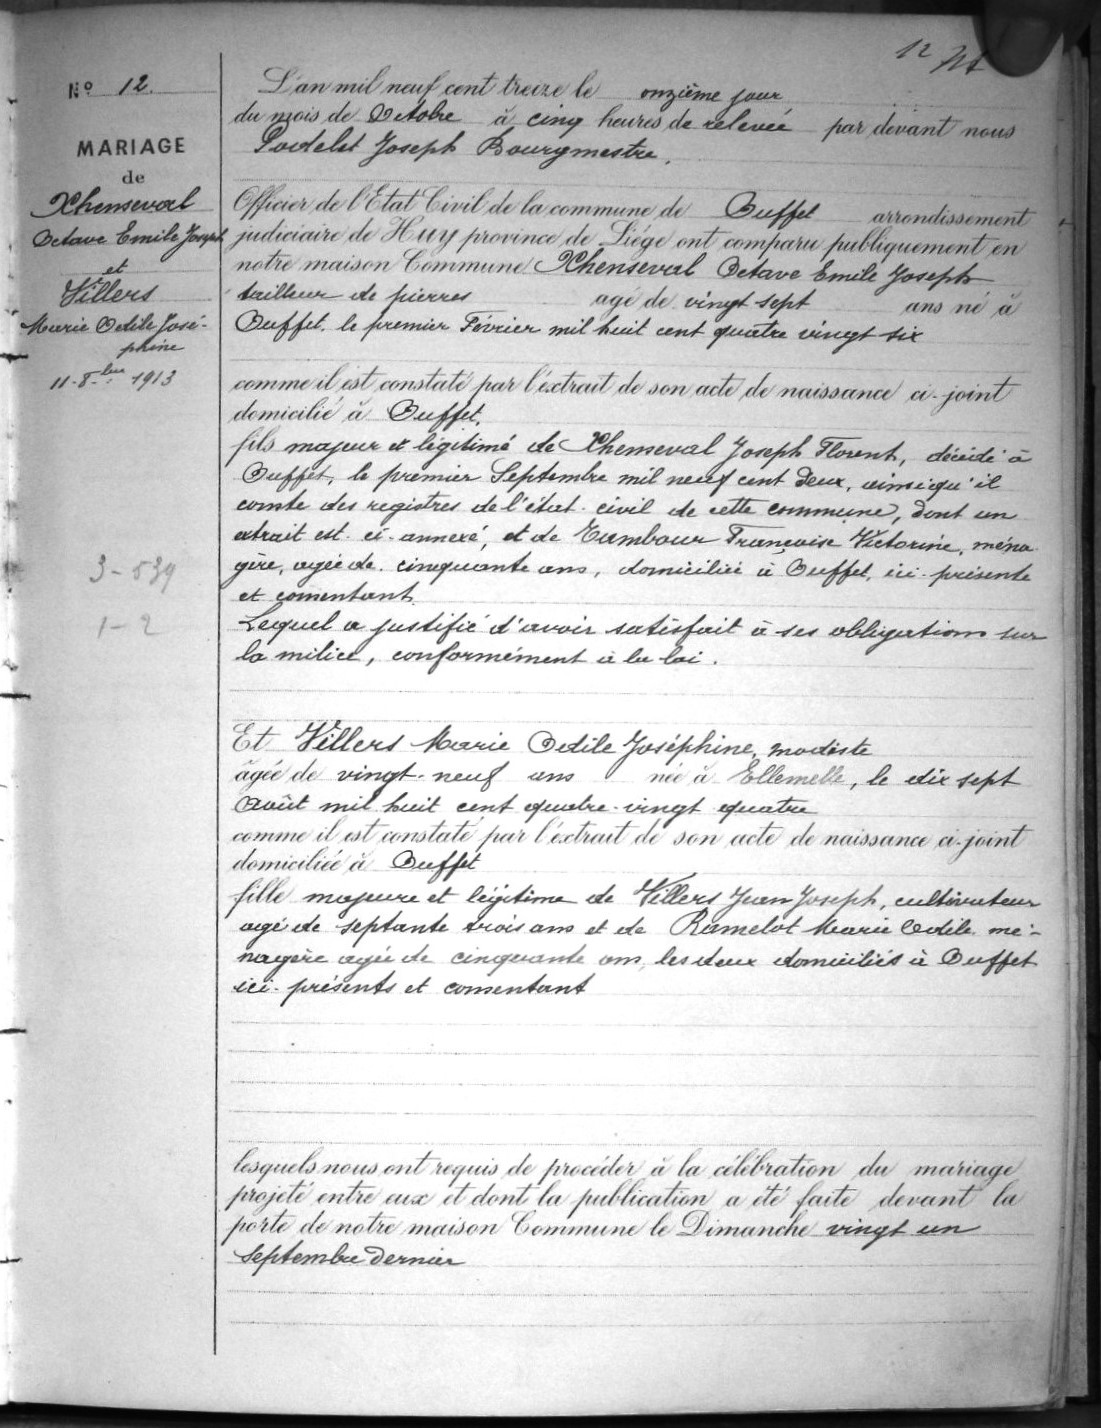 12
N° 12.
MARIAGE
de
Xhenseval
Octave Emile Joseph
et
Villers
Marie Odile José-
phine
11-8-bre 1913
3-539
1-2
L'an mil neuf cent treize le onzième jour
du mois de Octobre à cinq heures de relevée par devant nous
Joseph Bourgmestre,
Officier de l'Etat Civil de la commune de Ouffet arrondissement
judiciaire de Huy province de Liége ont comparu publiquement en
notre maison Commune Xhenseval Octave Emile Joseph
tailleur de pierres agé de vingt sept ans né à
Ouffet, le premier Février mil huit cent quatre vingt six
comme il est constaté par l'extrait de son acte de naissance ci-joint
domicilié à Ouffet,
fils majeur et légitimé de Xhenseval Joseph Florent, décédé à
Ouffet, le premier Septembre mil neuf cent deux, ainsi qu'il
conste des registres de l'état civil de cette commune, dont un
extrait est ci-annexé, et de Tambour Françoise Victorine, ména
gère, agée de cinquante ans, domiciliée à Ouffet, ici présente
et consentant.
Lequel a justifié d'avoir satisfait à ses obligations sur
la milice, conformément à la loi.
Et Villers Marie Odile Joséphine, modiste
âgée de vingt-neuf ans née à Ellemelle, le dix sept
Août mil huit cent quatre-vingt quatre
comme il est constaté par l'extrait de son acte de naissance ci-joint
domiciliée à Ouffet
fille majeure et légitime de Villers Jean Joseph, cultivateur
agé de septante trois ans et de Ramelot Marie Odile mé-
nagère agée de cinquante ans, les deux domiciliés à Ouffet
ici-présents et consentant
lesquels nous ont requis de procéder à la célébration du mariage
projeté entre eux et dont la publication a été faite devant la
porte de notre maison Commune le Dimanche vingt un
Septembre dernier